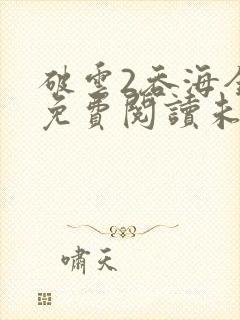 破雲2吞海全
免費閱讀未
嘯天